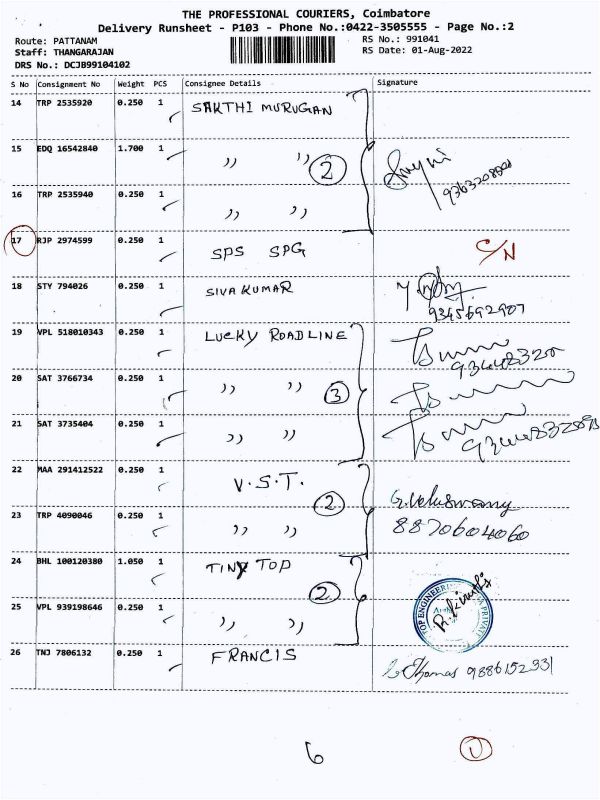 THE PROFESSIONAL COURIERS, Coimbatore
Delivery Runsheet - P103 - Phone No.:0422-3505555 - Page No.:2
Route: PATTANAM RS No.: 991041
Staff: THANGARAJAN RS Date: 01-Aug-2022
DRS No.: DCJB99104102
S No Consignment No Weight PCS Consignee Details Signature
14 TRP 2535920 0.250 1 SAKTHI MURUGAN
15 EDQ 16542840 1.700 1 ,, ,, 2
16 TRP 2535940 0.250 1 ,, ,,
17 RJP 2974599 0.250 1 SPS SPG C/N
18 STY 794026 0.250 1 SIVAKUMAR 9345692907
19 VPL 518010343 0.250 1 LUCKY ROADLINE
20 SAT 3766734 0.250 1 ,, ,, 3
21 SAT 3735404 0.250 1 ,, ,,
22 MAA 291412522 0.250 1 V.S.T. 2 G.Veluswamy
23 TRP 4090046 0.250 1 ,, ,, 8870604060
24 BHL 100120380 1.050 1 TINY TOP 2
25 VPL 939198646 0.250 1 ,, ,,
26 TNJ 7806132 0.250 1 FRANCIS Thomas 9886152331
6 1